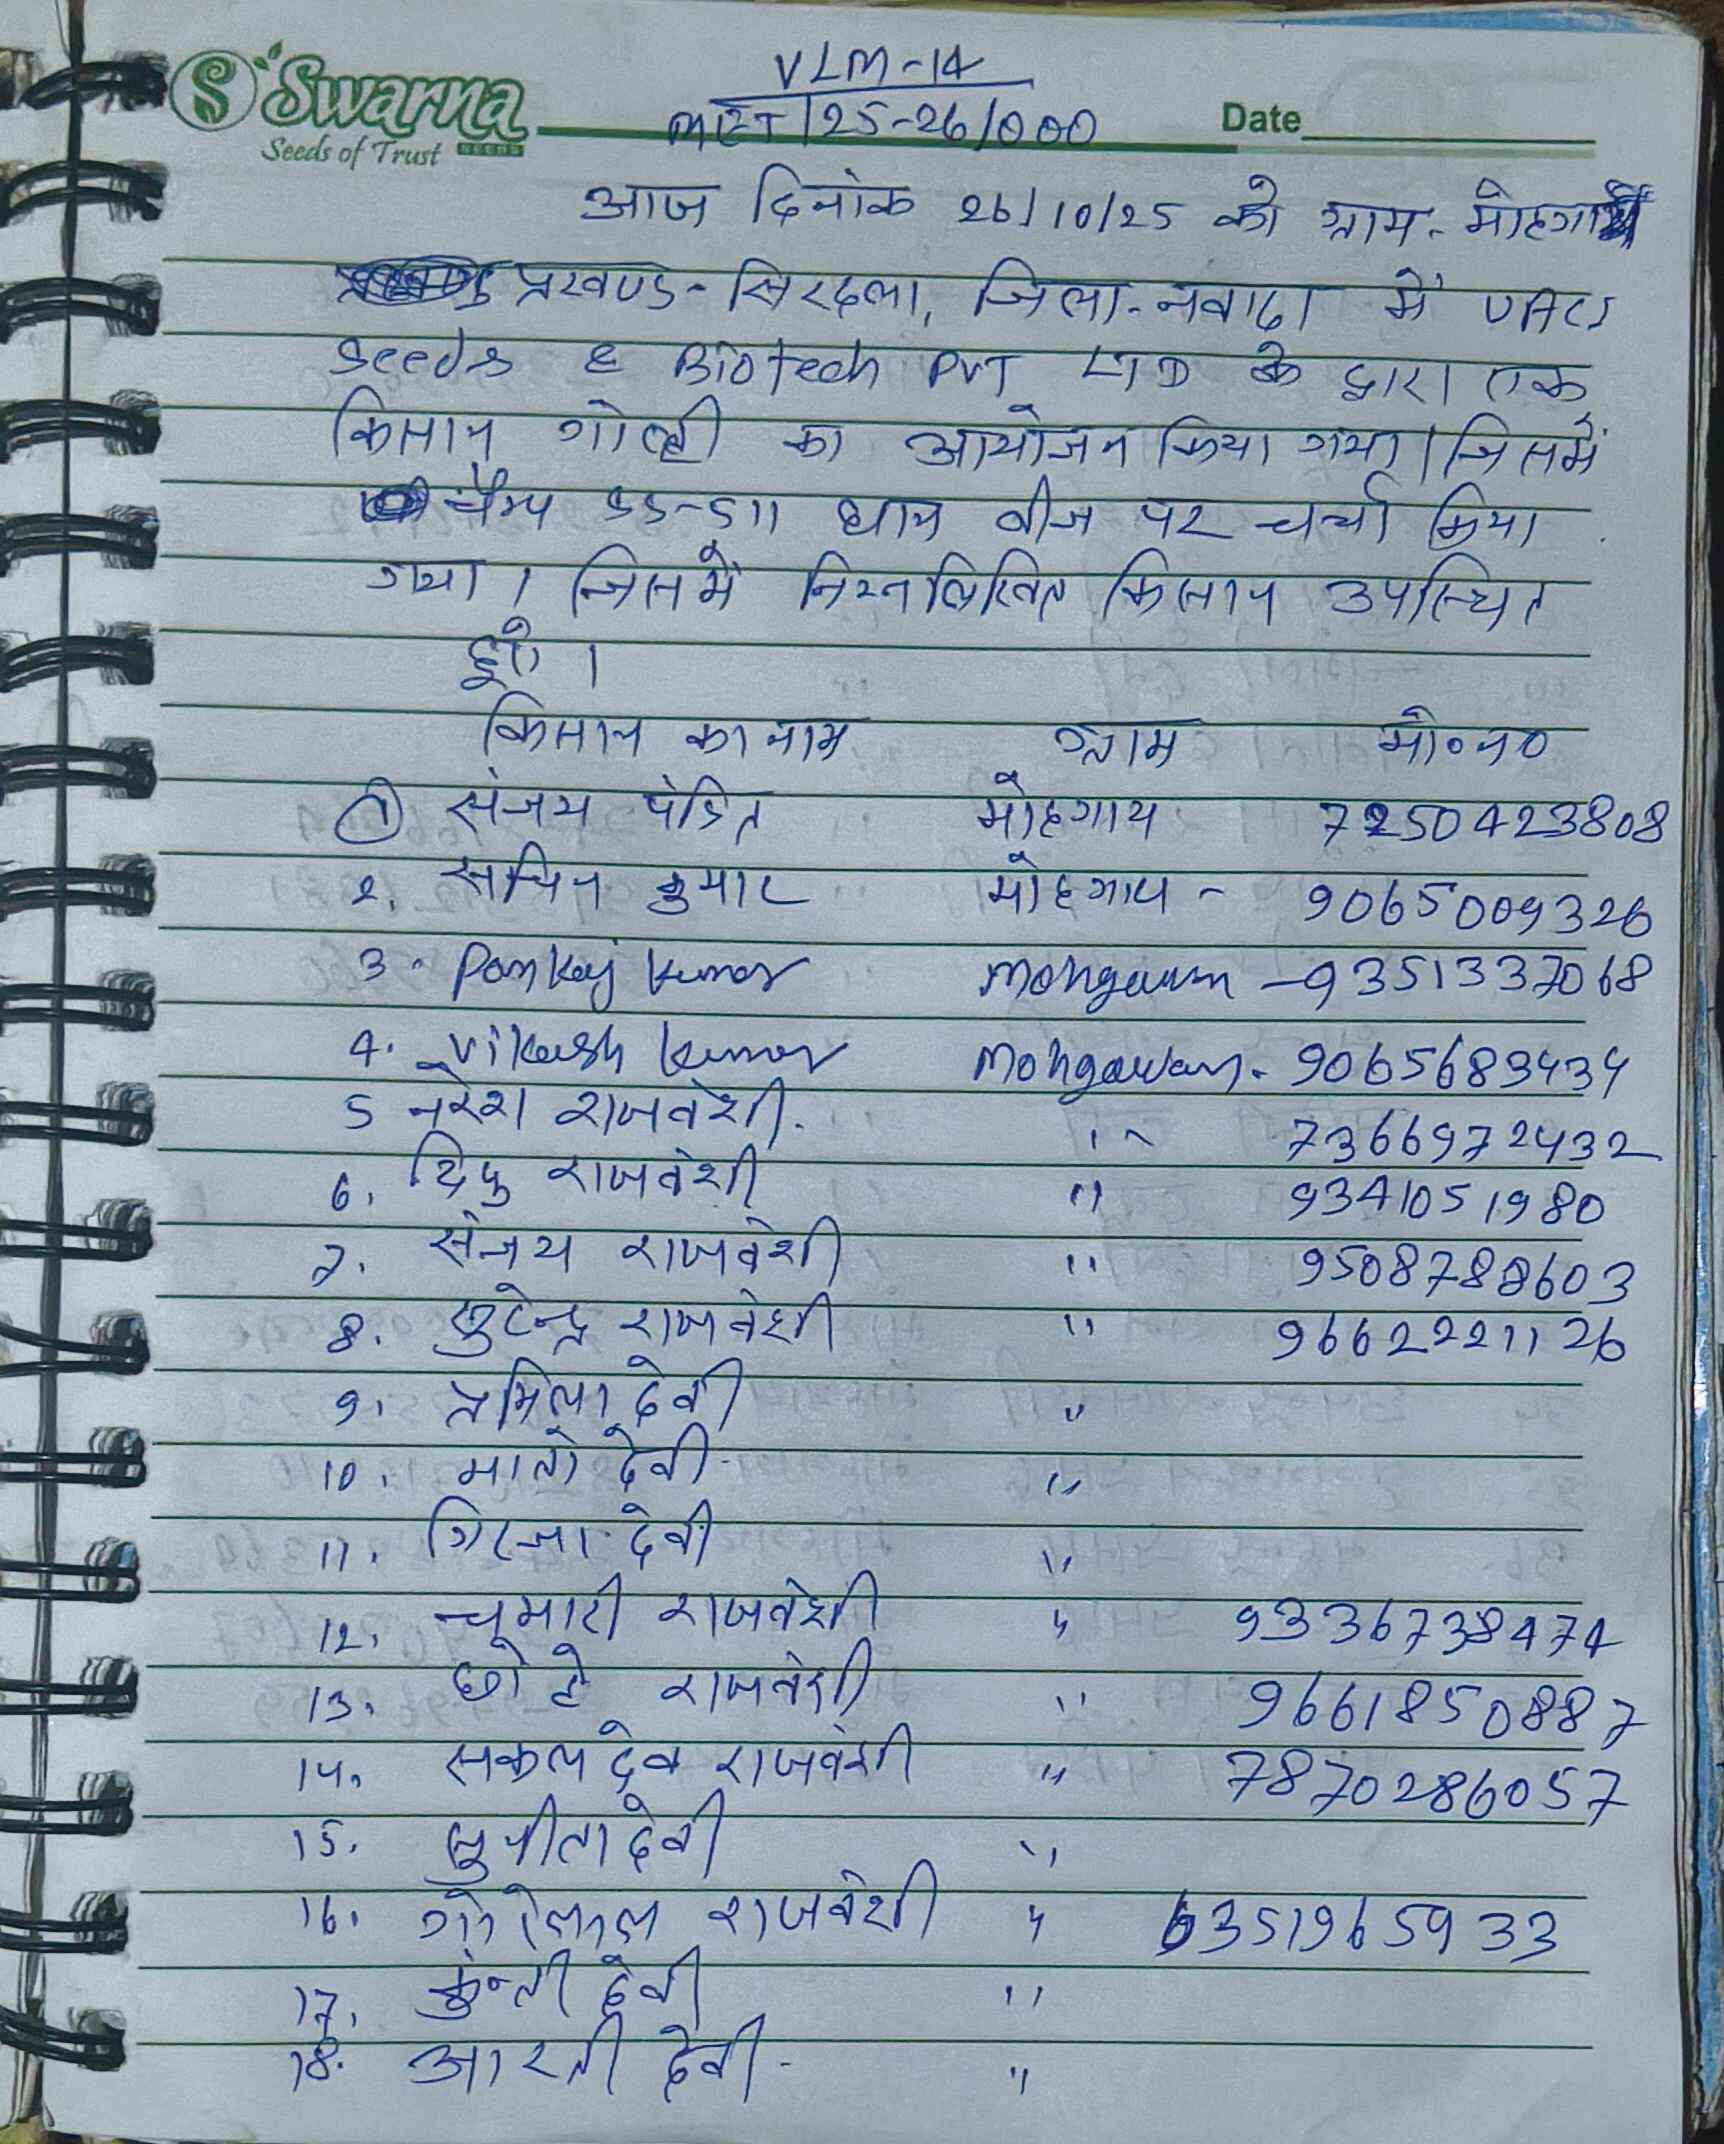 Swarna
Seeds of Trust SEEDS
VLM-14
MET/25-26/000
Date
आज दिनांक 26/10/25 को ग्राम- मोहगाय
प्रखण्ड- सिरदला, जिला-नवादा में UACS
Seeds & Biotech PVT LTD के द्वारा एक
किसान गोष्ठी का आयोजन किया गया। जिसमें
चैम्प SS-511 धान बीज पर चर्चा किया
गया। जिसमें निम्नलिखित किसान उपस्थित
हुए।
किसान का नाम ग्राम मो०न०
① संजय पंडित मोहगाय 7250423808
2. सचिन कुमार मोहगाय - 9065009326
3. Pankaj kumar Mohgawan - 9351337068
4. Vikash kumar Mohgawan. 9065683434
5 नरेश राजवंशी. '' 7366972432
6. दिपु राजवंशी '' 9341051980
7. संजय राजवंशी '' 9508788603
8. सुरेन्द्र राजवंशी '' 9662221126
9. प्रमिला देवी ''
10. मालो देवी- ''
11. गिरजा देवी ''
12. चुमारी राजवंशी '' 9336738474
13. छोटे राजवंशी '' 9661850887
14. सकल देव राजवंशी '' 7870286057
15. सुनीता देवी ''
16. गोरेलाल राजवंशी '' 6351965933
17. कुन्ती देवी ''
18. आरती देवी- ''